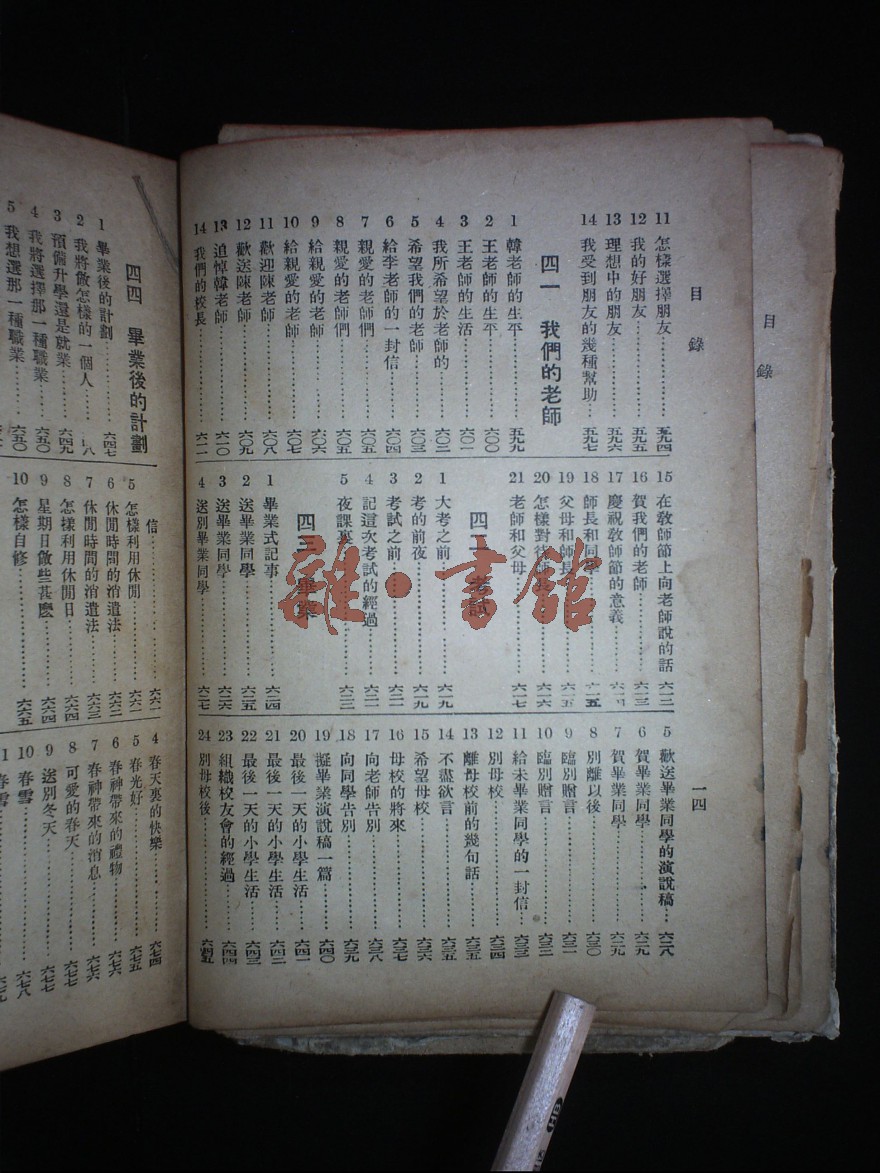 目錄
目錄
一四
11 怎樣選擇朋友………五九四
12 我的好朋友………五九五
13 理想中的朋友………五九六
14 我受到朋友的幾種幫助………五九七
四一 我們的老師
1 韓老師的生平………五九九
2 王老師的生平………六〇〇
3 王老師的生活………六〇一
4 我所希望於老師的………六〇二
5 希望我們的老師………六〇三
6 給李老師的一封信………六〇四
7 親愛的老師們………六〇五
8 親愛的老師們………六〇五
9 給親愛的老師………六〇六
10 給親愛的老師………六〇七
11 歡迎陳老師………六〇八
12 歡送陳老師………六〇九
13 追悼韓老師………六一〇
14 我們的校長………六一一
15 在敎師節上向老師說的話………六一二
16 賀我們的老師………六一三
17 慶祝敎師節的意義………六一四
18 師長和同學………六一五
19 父母和師長………六一五
20 怎樣對待師長………六一六
21 老師和父母………六一七
四二 考試
1 大考之前………六一九
2 考的前夜………六一九
3 考試之前………六二一
4 記這次考試的經過………六二一
5 夜課裏………六二三
四三 畢業
1 畢業式記事………六二四
2 送畢業同學………六二五
3 送畢業同學………六二六
4 送別畢業同學………六二七
5 歡送畢業同學的演說稿………六二八
6 賀畢業同學………六二九
7 賀畢業同學………六二九
8 別離以後………六三〇
9 臨別贈言………六三一
10 臨別贈言………六三二
11 給未畢業同學的一封信………六三三
12 別母校………六三四
13 離母校前的幾句話………六三五
14 不盡欲言………六三五
15 希望母校………六三六
16 母校的將來………六三七
17 向老師告別………六三八
18 向同學告別………六三九
19 擬畢業演說稿一篇………六四〇
20 最後一天的小學生活………六四一
21 最後一天的小學生活………六四二
22 最後一天的小學生活………六四三
23 組織校友會的經過………六四四
24 別母校後………六四五
四四 畢業後的計劃
1 畢業後的計劃………六四七
2 我將做怎樣的一個人………八
3 預備升學還是就業………六四九
4 我將選擇那一種職業………六五〇
5 我想選那一種職業………六五〇
信………六六一
5 怎樣利用休閒………六六一
6 休閒時間的消遣法………六六二
7 休閒時間的消遣法………六六三
8 怎樣利用休閒日………六六四
9 星期日做些甚麼………六六四
10 怎樣自修………六六五
4 春天裏的快樂………六七四
5 春光好………六七五
6 春神帶來的禮物………六七六
7 春神帶來的消息………六七六
8 可愛的春天………六七七
9 送別冬天………六七七
10 春雪………六七八
1 春雪………六七九
雜·書館
HB